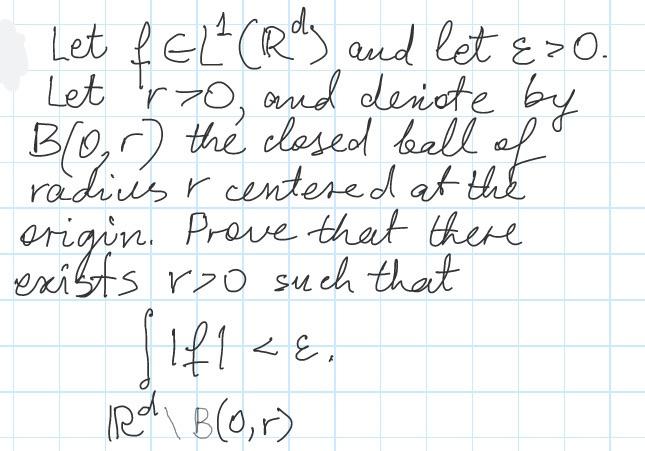 Let f ∈ L¹(ℝᵈ) and let ε > 0.
Let r > 0, and denote by
B(0,r) the closed ball of
radius r centered at the
origin. Prove that there
exists r > 0 such that
∫ |f| < ε.
ℝᵈ \ B(0,r)